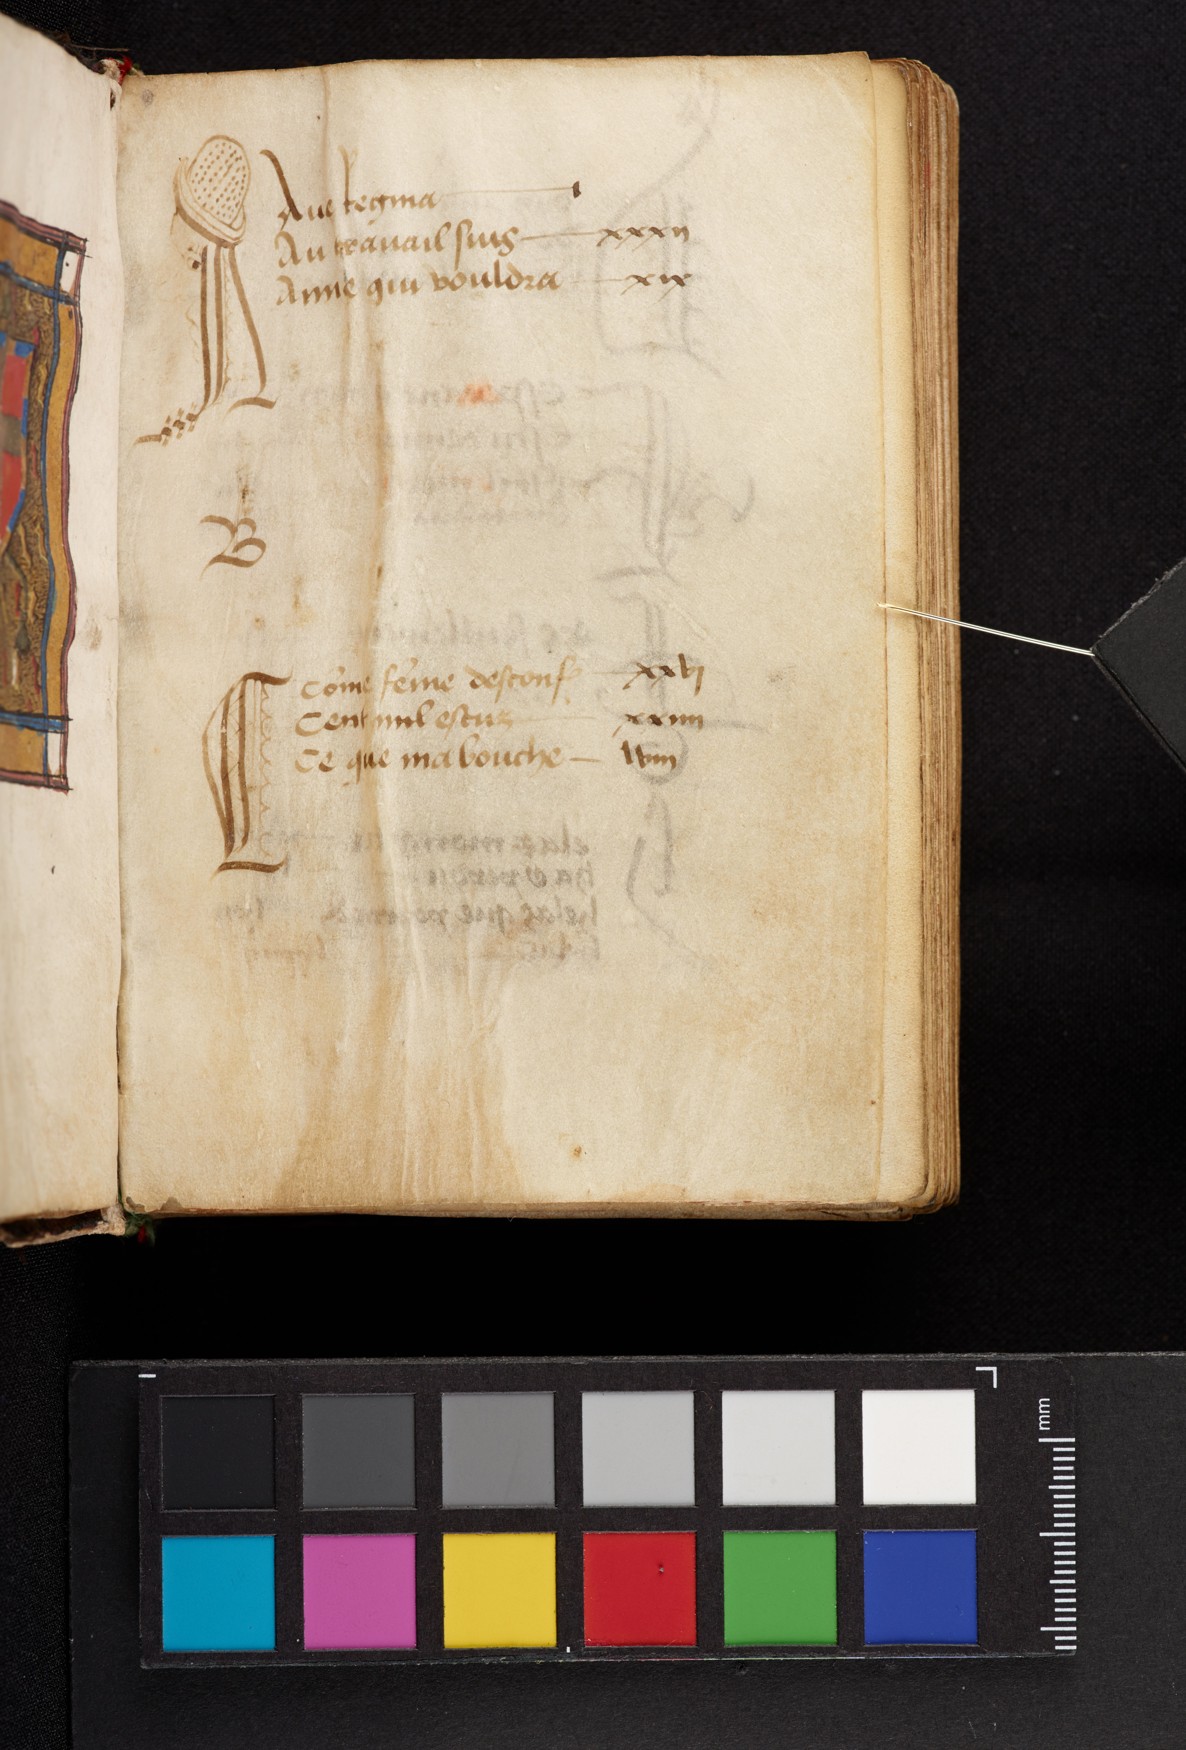 A
Aue regina i
Au trauail suis xxxii
Anne qui vouldra xix
B
C
Cõme fẽme desconf xxvi
Cent mil escus xxiiii
Ce que ma bouche lviii
mm